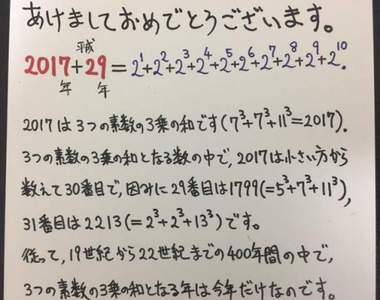 あけましておめでとうございます。
平成
2017+29=2¹+2²+2³+2⁴+2⁵+2⁶+2⁷+2⁸+2⁹+2¹⁰.
年 年
2017は3つの素数の3乗の和です(7³+7³+11³=2017).
3つの素数の3乗の和となる数の中で,2017は小さい方から
数えて30番目で,因みに29番目は1799(=5³+7³+11³),
31番目は2213(=2³+2³+13³)です。
従って,19世紀から22世紀までの400年間の中で,
3つの素数の3乗の和となる年は今年だけなのです。